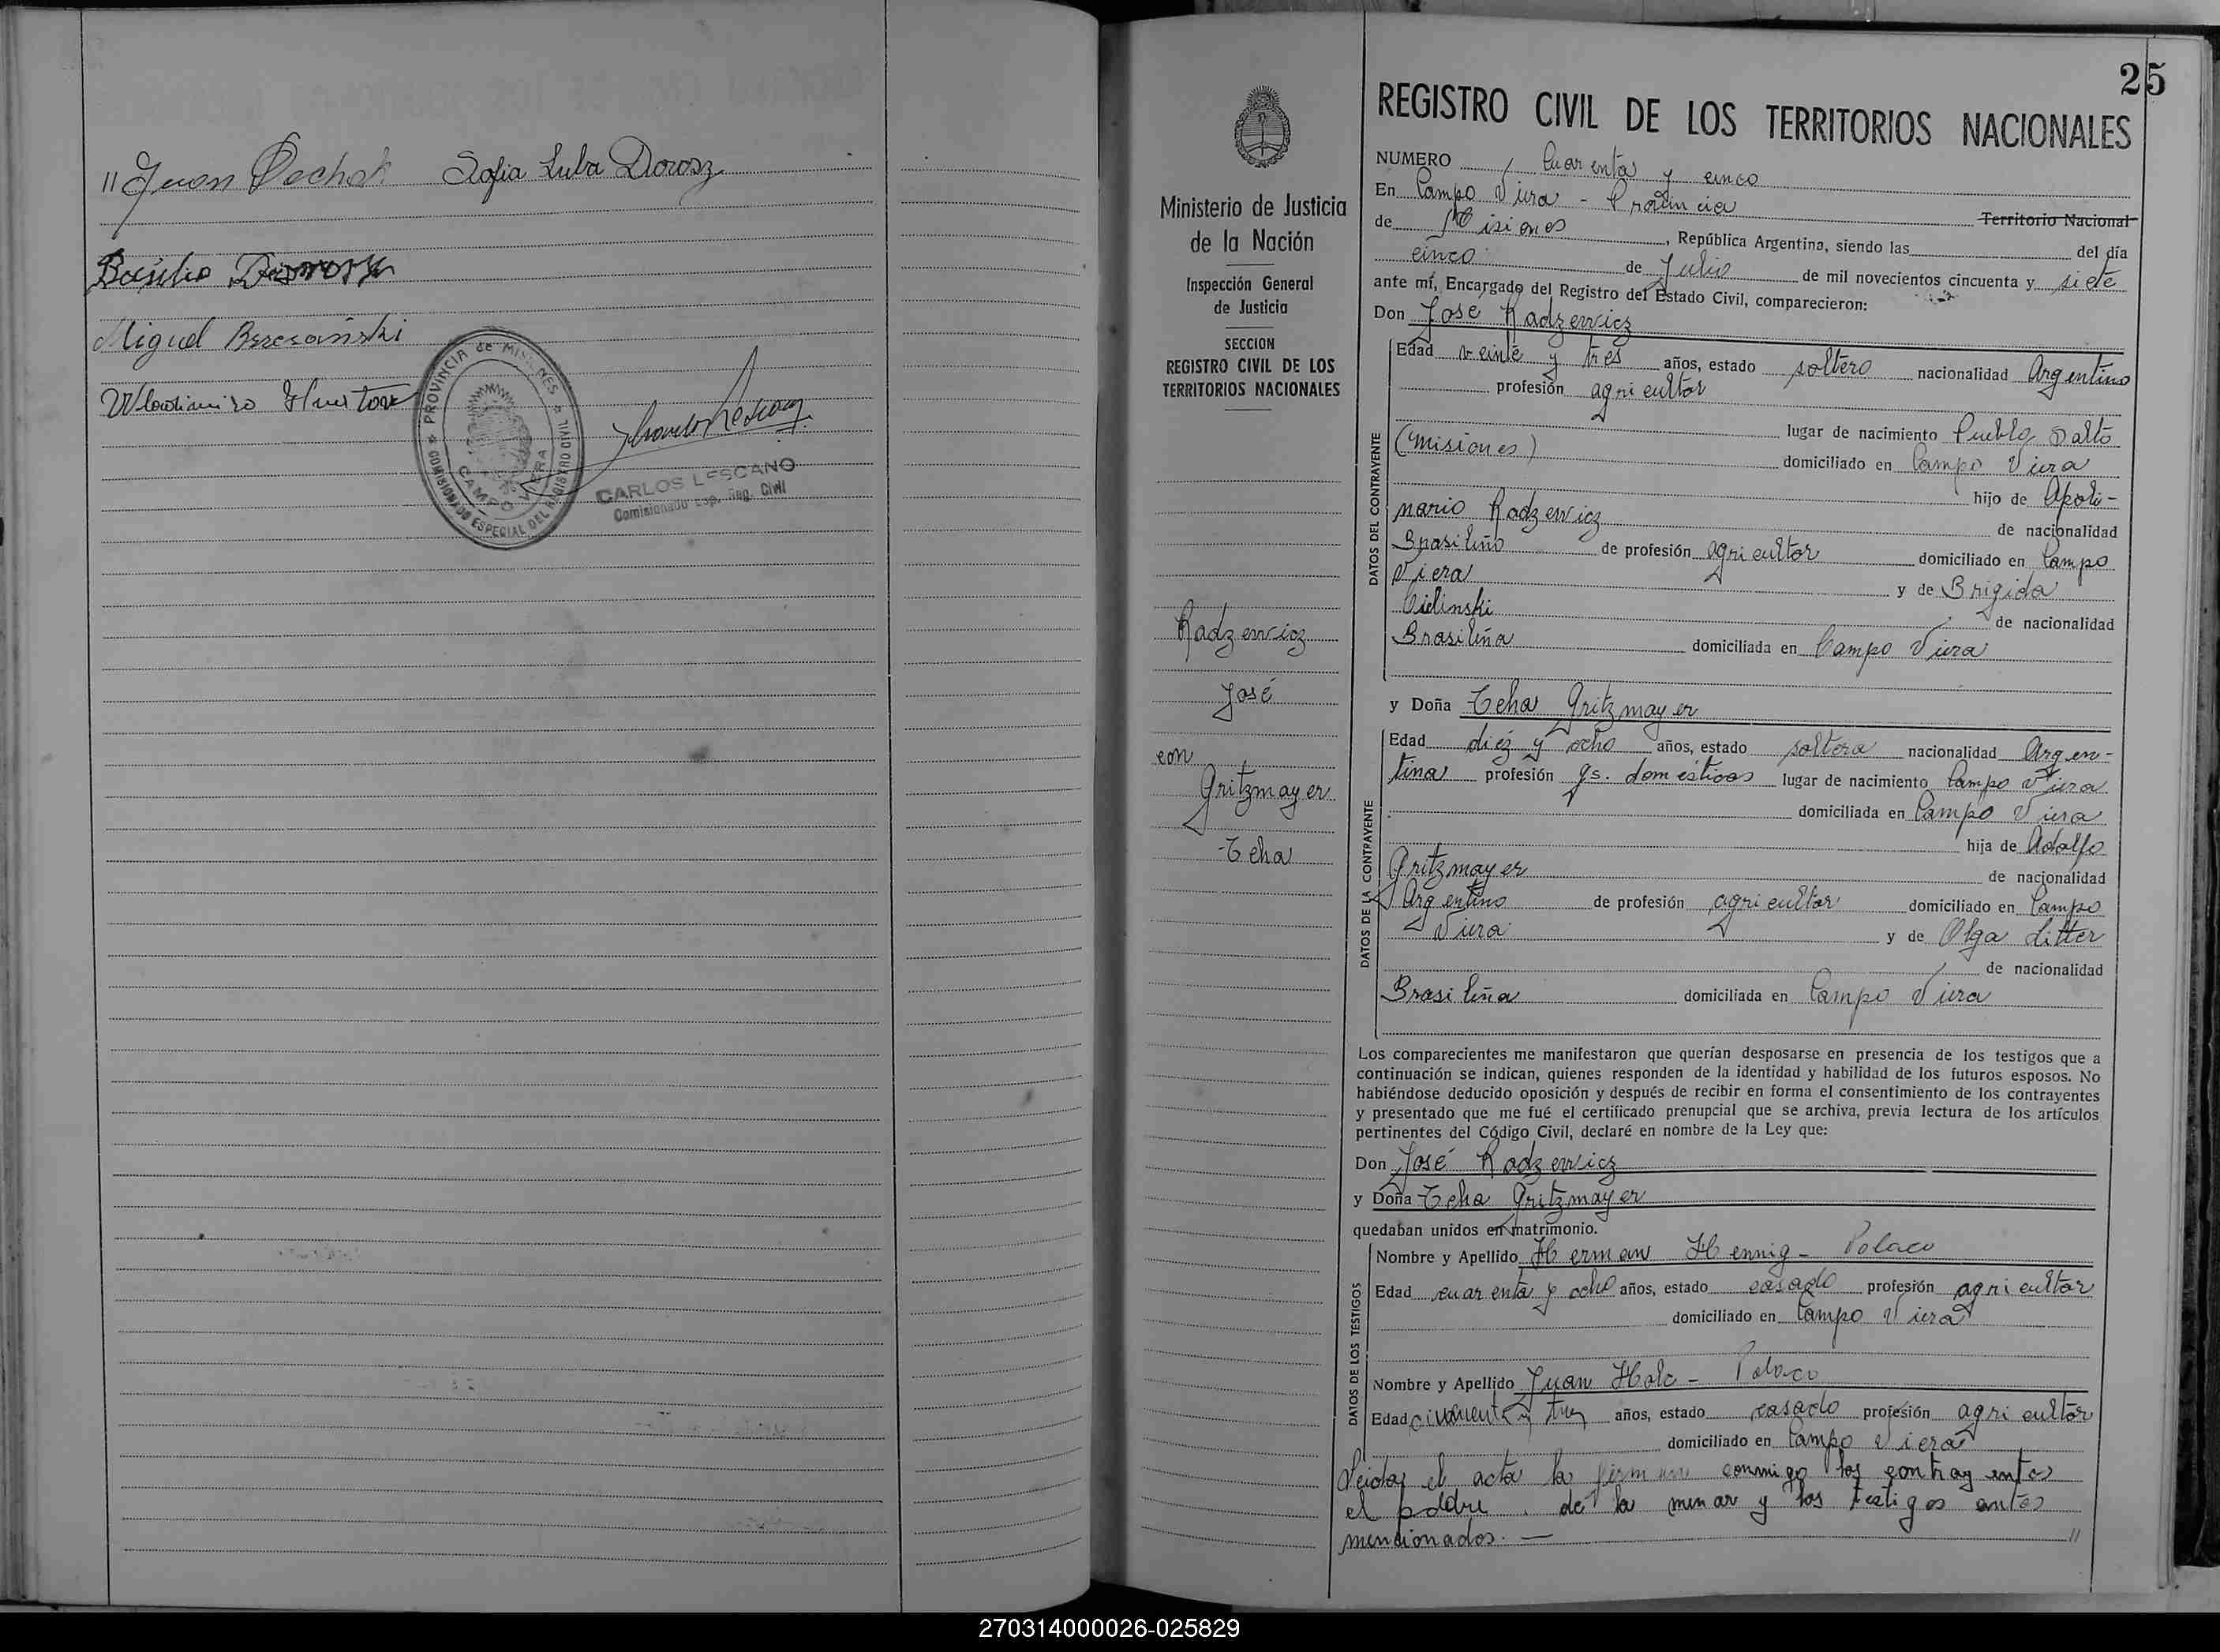 " Juan Sofia Luba Dorosz
Basilio
Miguel
PROVINCIA de MISIONES
COMISIONADO ESPECIAL DEL REGISTRO CIVIL
CAMPO VIERA
CARLOS LESCANO
Comisionado Esp. Reg. Civil
25
Ministerio de Justicia
de la Nación
Inspección General
de Justicia
SECCION
REGISTRO CIVIL DE LOS
TERRITORIOS NACIONALES
Radzewicz
José
con
Gritzmayer
REGISTRO CIVIL DE LOS TERRITORIOS NACIONALES
NUMERO Cuarenta y cinco
En Campo Viera - Provincia Territorio Nacional
de Misiones, República Argentina, siendo las del día
cinco de Julio de mil novecientos cincuenta y siete
ante mí, Encargado del Registro del Estado Civil, comparecieron:
Don José Radzewicz
DATOS DEL CONTRAYENTE
Edad veinte y tres años, estado soltero nacionalidad Argentino
profesión agricultor
lugar de nacimiento Pueblo Salto
(Misiones) domiciliado en Campo Viera
hijo de Apoli-
nario Radzewicz de nacionalidad
Brasileño de profesión agricultor domiciliado en Campo
Viera y de Brigida
Cielinski de nacionalidad
Brasileña domiciliada en Campo Viera
y Doña Gritzmayer
DATOS DE LA CONTRAYENTE
Edad diez y ocho años, estado soltera nacionalidad Argen-
tina profesión qs. domésticos lugar de nacimiento Campo Viera
domiciliada en Campo Viera
hija de Adolfo
Gritzmayer de nacionalidad
Argentino de profesión agricultor domiciliado en Campo
Viera y de Olga Litter
de nacionalidad
Brasileña domiciliada en Campo Viera
Los comparecientes me manifestaron que querían desposarse en presencia de los testigos que a
continuación se indican, quienes responden de la identidad y habilidad de los futuros esposos. No
habiéndose deducido oposición y después de recibir en forma el consentimiento de los contrayentes
y presentado que me fué el certificado prenupcial que se archiva, previa lectura de los artículos
pertinentes del Código Civil, declaré en nombre de la Ley que:
Don José Radzewicz
y Doña Gritzmayer
quedaban unidos en matrimonio.
DATOS DE LOS TESTIGOS
Nombre y Apellido Herman Hennig - Polaco
Edad cuarenta y ocho años, estado casado profesión agricultor
domiciliado en Campo Viera
Nombre y Apellido Juan Holc - Polaco
Edad cincuenta y tres años, estado casado profesión agricultor
domiciliado en Campo Viera
Leida el acta la firman conmigo los contrayentes
el padre de la menor y los testigos antes
mencionados. — "
270314000026-025829